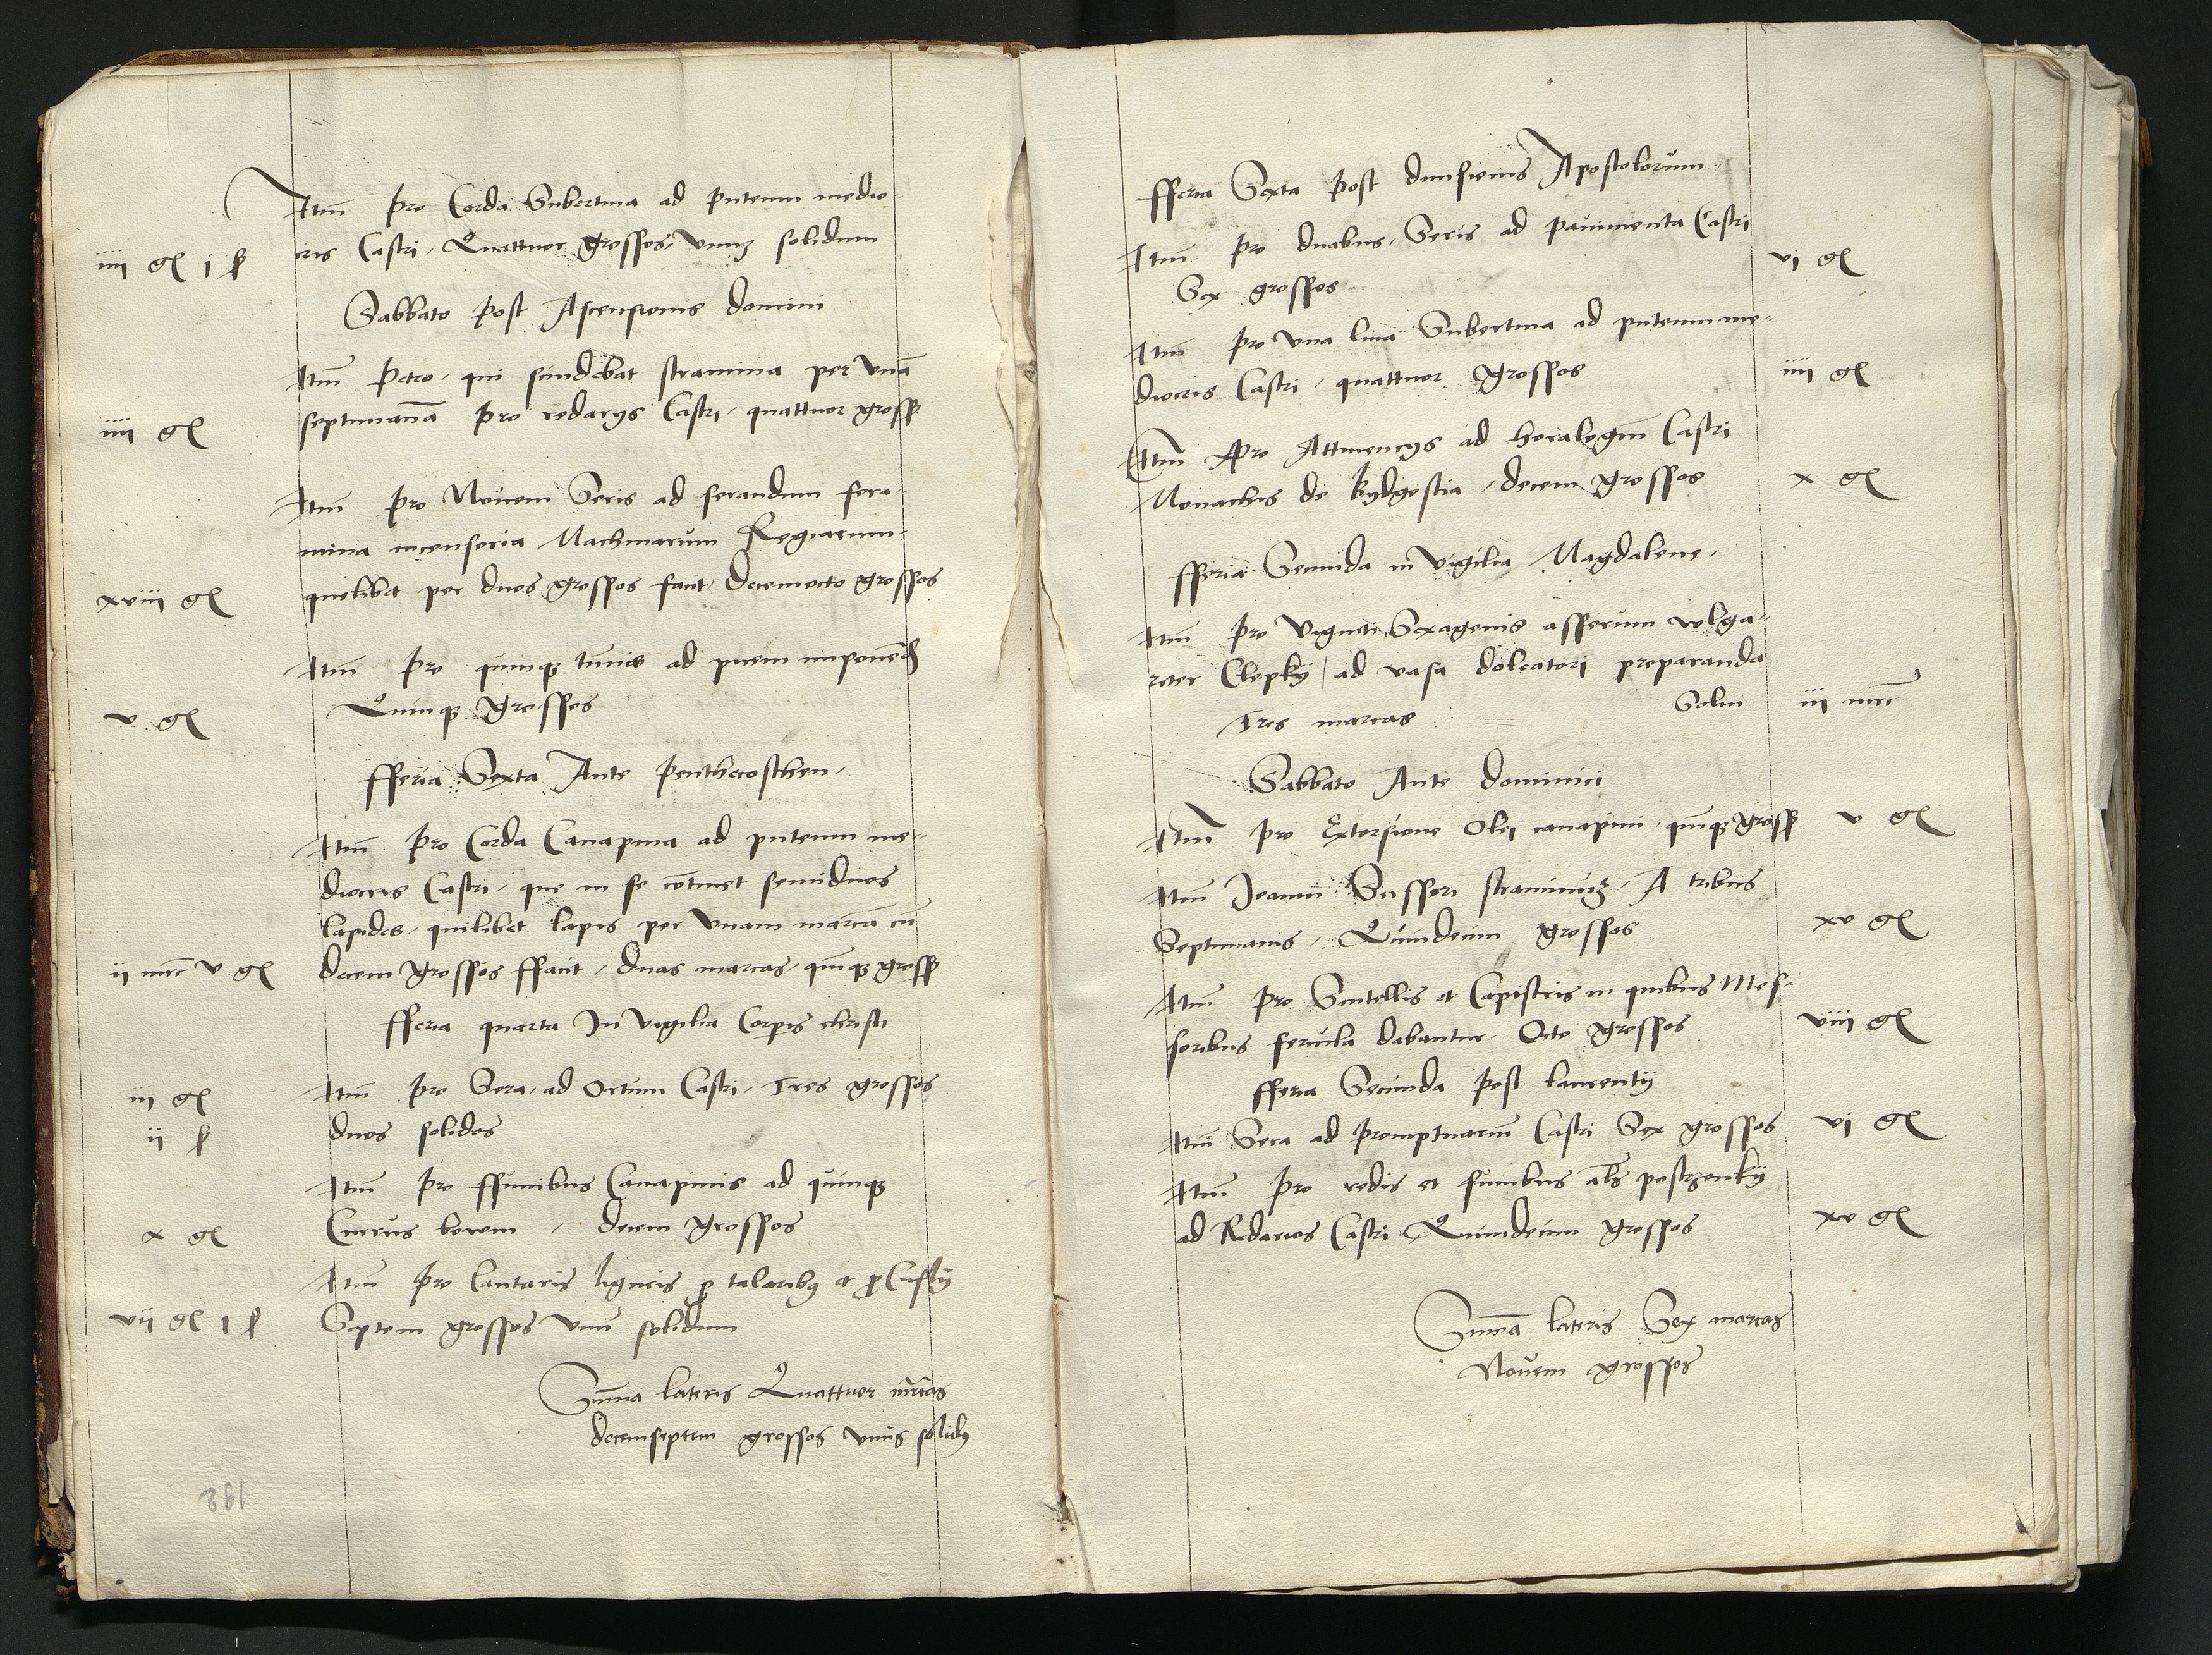 Itm pro Corda Subertina ad puteum medio-
cris Castri, Quattuor grossos, unuz solidum
iiii gl i ſ
Sabbato post Ascensionis domini
Itm Petro, qui sindebat stramina per unā
septimanā pro redarijs Castri, quattuor gross
iiii gl
Itm pro Nouem Seris ad serandum fora-
mina incensoria Machinarum Regiarum
quelibet per duos grossos facit decemocto grossos
xviii gl
Itm pro quinqz tunis ad picem imponēd
Quinqz grossos
v gl
fferia Sexta Ante Penthecosthen
Itm pro Corda Canapina ad puteum me-
diocris Castri, que in se cōtinet semiduos
lapides, quilibet lapis per unam marcā cū
decem grossos ffacit, duas marcas, quinqz gross
ii mrc v gl
fferia quarta In vigilia Corpis christi
Itm pro Sera, ad Ortum Castri, Tres grossos
duos solidos
iii gl
ii ſ
Itm pro ffunibus Canapinis ad quinqz
Currus bovem, decem grossos
x gl
Itm pro Cantaris ligneis p talaribz et p Cuffly
Septem grossos unū solidum
vii gl i ſ
Summa lateris Quattuor mrcas
decemseptem grossos unus solidz
192
fferia Sexta post diuisionis Apostolorum
Itm pro duabus Seris ad pauimenta Castri
Sex grossos
vi gl
Itm pro una linia Subertina ad puteum me-
diocris Castri, quattuor grossos
iiii gl
Itm Pro Attinencijs ad horalogiū Castri
Monachis de bydgostia, decem grossos
x gl
fferia Secunda in vigilia Magdalene
Itm pro viginti Sexagenis asserum wlga-
riter Clepky ad vasa doleatori preparanda
Tres marcas Solui
iii mrc
Sabbato Ante dominici
Itm pro Extorsione Olej canapini quinqz gross
v gl
Itm Joanni Scissori straminuz, A tribus
Septimanis, Quindecim grossos
xv gl
Itm pro Scutellis et Capisteris in quibus Mes-
soribus fercula dabantur Octo grossos
viii gl
fferia Secunda post laurentij
Itm Sera ad promptuariū Castri Sex grossos
vi gl
Itm pro redis et funibus als postronky
ad Redarios Castri Quindecim grossos
xv gl
Summa lateris Sex marcas
Nouem grossos